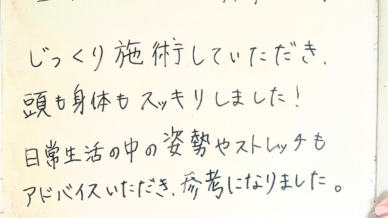 じっくり施術していただき、
頭も身体もスッキリしました！
日常生活の中の姿勢やストレッチも
アドバイスいただき、参考になりました。